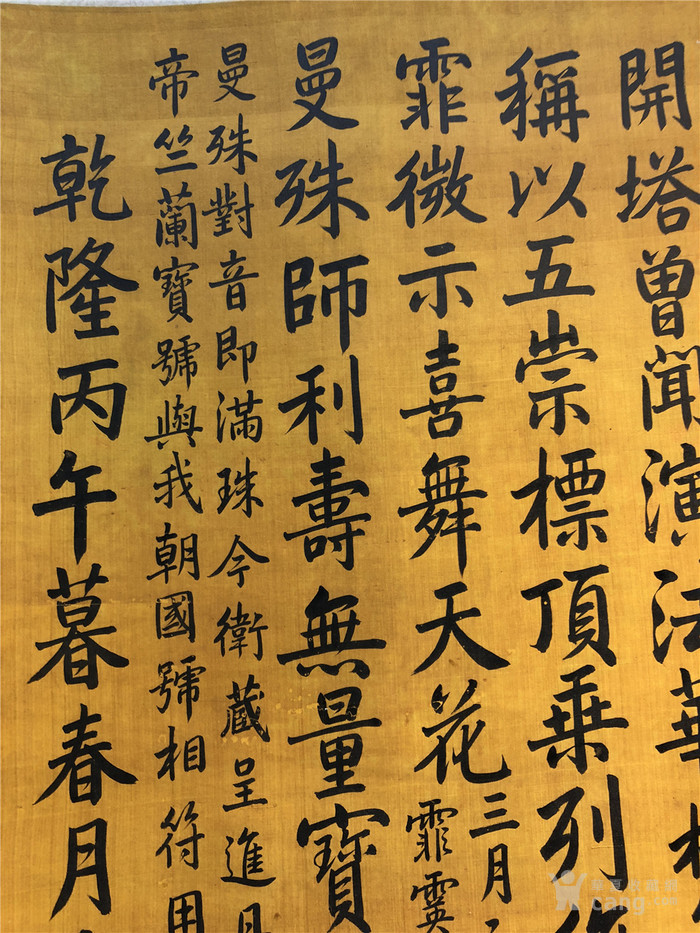 開塔曾聞演法華
稱以五崇標頂乘列
霏微示喜舞天花
三月
霏霙
曼殊師利壽無量寶
曼殊對音即滿珠今衛藏呈進丹
帝竺蘭寶號與我朝國號相符用
乾隆丙午暮春月